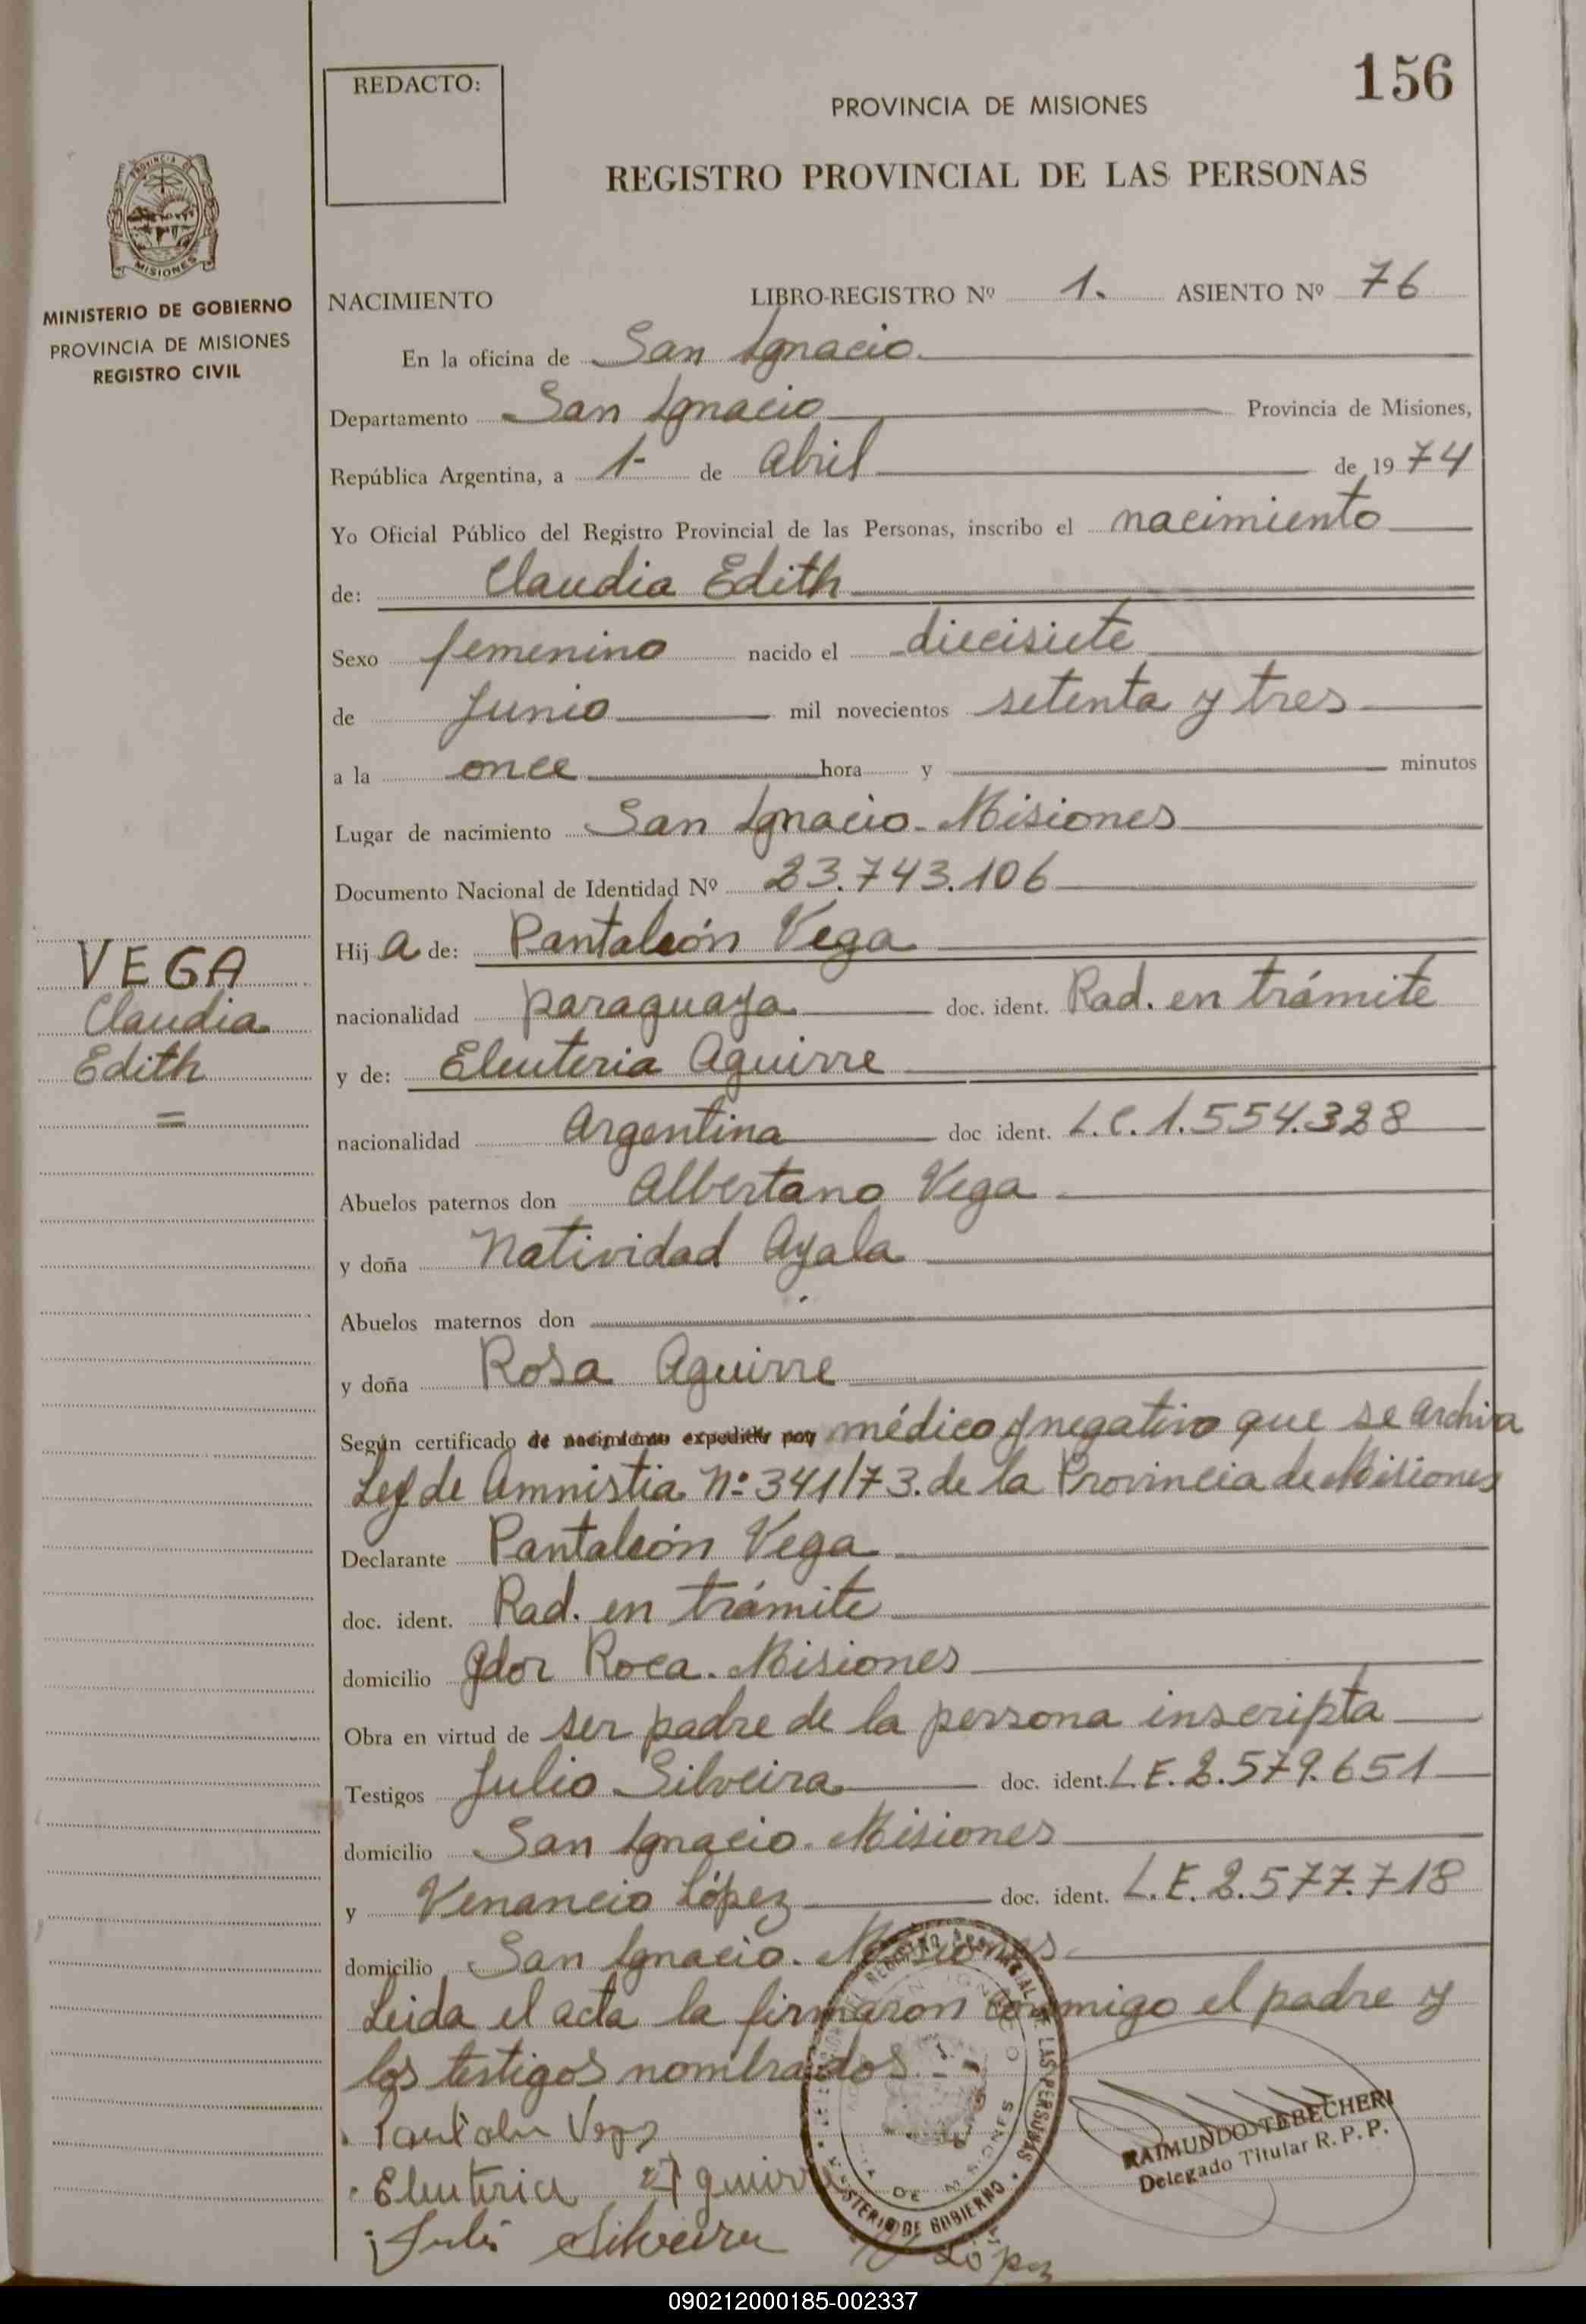 REDACTO:
156
PROVINCIA DE MISIONES
REGISTRO PROVINCIAL DE LAS PERSONAS
PROVINCIA DE
MISIONES
MINISTERIO DE GOBIERNO
PROVINCIA DE MISIONES
REGISTRO CIVIL
NACIMIENTO LIBRO-REGISTRO Nº 1. ASIENTO Nº 76
En la oficina de San Ignacio.
Departamento San Ignacio Provincia de Misiones,
República Argentina, a 1- de Abril de 1974
Yo Oficial Público del Registro Provincial de las Personas, inscribo el nacimiento
de: Claudia Edith
Sexo femenino nacido el diecisiete
de Junio mil novecientos setenta y tres
a la once hora y minutos
Lugar de nacimiento San Ignacio - Misiones
Documento Nacional de Identidad Nº 23.743.106
VEGA
Claudia
Edith
=
Hij a de: Pantaleón Vega
nacionalidad paraguaya doc. ident. Rad. en trámite
y de: Eleuteria Aguirre
nacionalidad Argentina doc ident. L.C. 1.554.328
Abuelos paternos don Albertano Vega
y doña Natividad Ayala
Abuelos maternos don
y doña Rosa Aguirre
Según certificado de nacimiento expedido por médico y negativo que se archiva
Ley de Amnistia Nº 341/73. de la Provincia de Misiones
Declarante Pantaleón Vega
doc. ident. Rad. en trámite
domicilio Gdor Roca. Misiones
Obra en virtud de ser padre de la persona inscripta
Testigos Julio Silveira doc. ident. L.E. 2.579.651
domicilio San Ignacio. Misiones
y Venancio López doc. ident. L.E. 2.577.718
domicilio San Ignacio. Misiones.
Leida el acta la firmaron conmigo el padre y
los testigos nombrados. -
Pantaleon Vega
Eleuteria Aguirre
Julio Silveira
López
MINISTERIO DE GOBIERNO
DE LAS PERSONAS
RAIMUNDO TEBECHERI
Delegado Titular R. P. P.
090212000185-002337